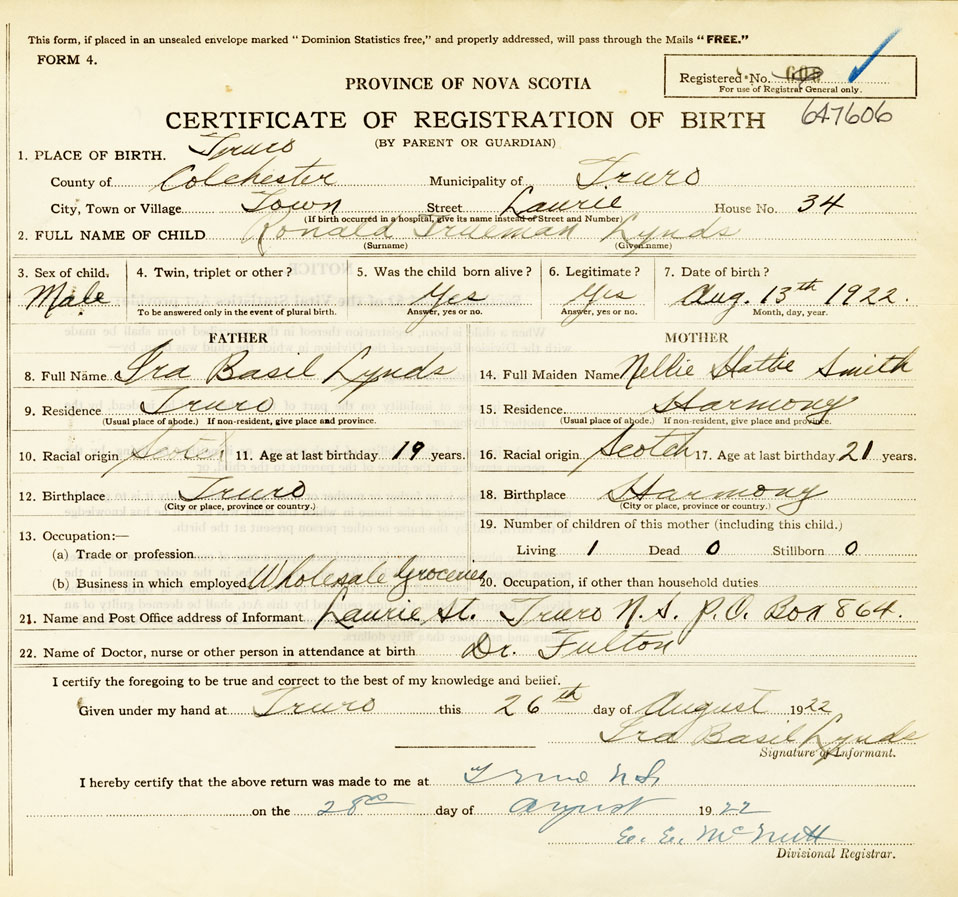 This form, if placed in an unsealed envelope marked " Dominion Statistics free," and properly addressed, will pass through the Mails "FREE."
FORM 4.
Registered No.
For use of Registrar General only.
PROVINCE OF NOVA SCOTIA
647606
CERTIFICATE OF REGISTRATION OF BIRTH
(BY PARENT OR GUARDIAN)
1. PLACE OF BIRTH. Truro
County of Colchester Municipality of Truro
City, Town or Village Town Street Laurie House No. 34
(If birth occurred in a hospital, give its name instead of Street and Number)
2. FULL NAME OF CHILD Ronald Trueman Lynds
(Surname) (Given name)
3. Sex of child. 4. Twin, triplet or other? 5. Was the child born alive? 6. Legitimate? 7. Date of birth?
Male Yes Yes Aug. 13th 1922.
To be answered only in the event of plural birth. Answer, yes or no. Answer, yes or no. Month, day, year.
FATHER MOTHER
8. Full Name Ira Basil Lynds 14. Full Maiden Name Nellie Hattie Smith
9. Residence Truro 15. Residence Harmony
(Usual place of abode.) If non-resident, give place and province. (Usual place of abode.) If non-resident, give place and province.
10. Racial origin Scotch 11. Age at last birthday 19 years. 16. Racial origin Scotch 17. Age at last birthday 21 years.
12. Birthplace Truro 18. Birthplace Harmony
(City or place, province or country.) (City or place, province or country.)
13. Occupation:— 19. Number of children of this mother (including this child.)
(a) Trade or profession Living 1 Dead 0 Stillborn 0
(b) Business in which employed Wholesale Groceries 20. Occupation, if other than household duties
21. Name and Post Office address of Informant Laurie St. Truro N.S. P.O. Box 864.
22. Name of Doctor, nurse or other person in attendance at birth Dr. Fulton
I certify the foregoing to be true and correct to the best of my knowledge and belief.
Given under my hand at Truro this 26th day of August 1922
Ira Basil Lynds
Signature of Informant.
I hereby certify that the above return was made to me at Truro N.S.
on the 28th day of August 1922
E. E. McNutt
Divisional Registrar.